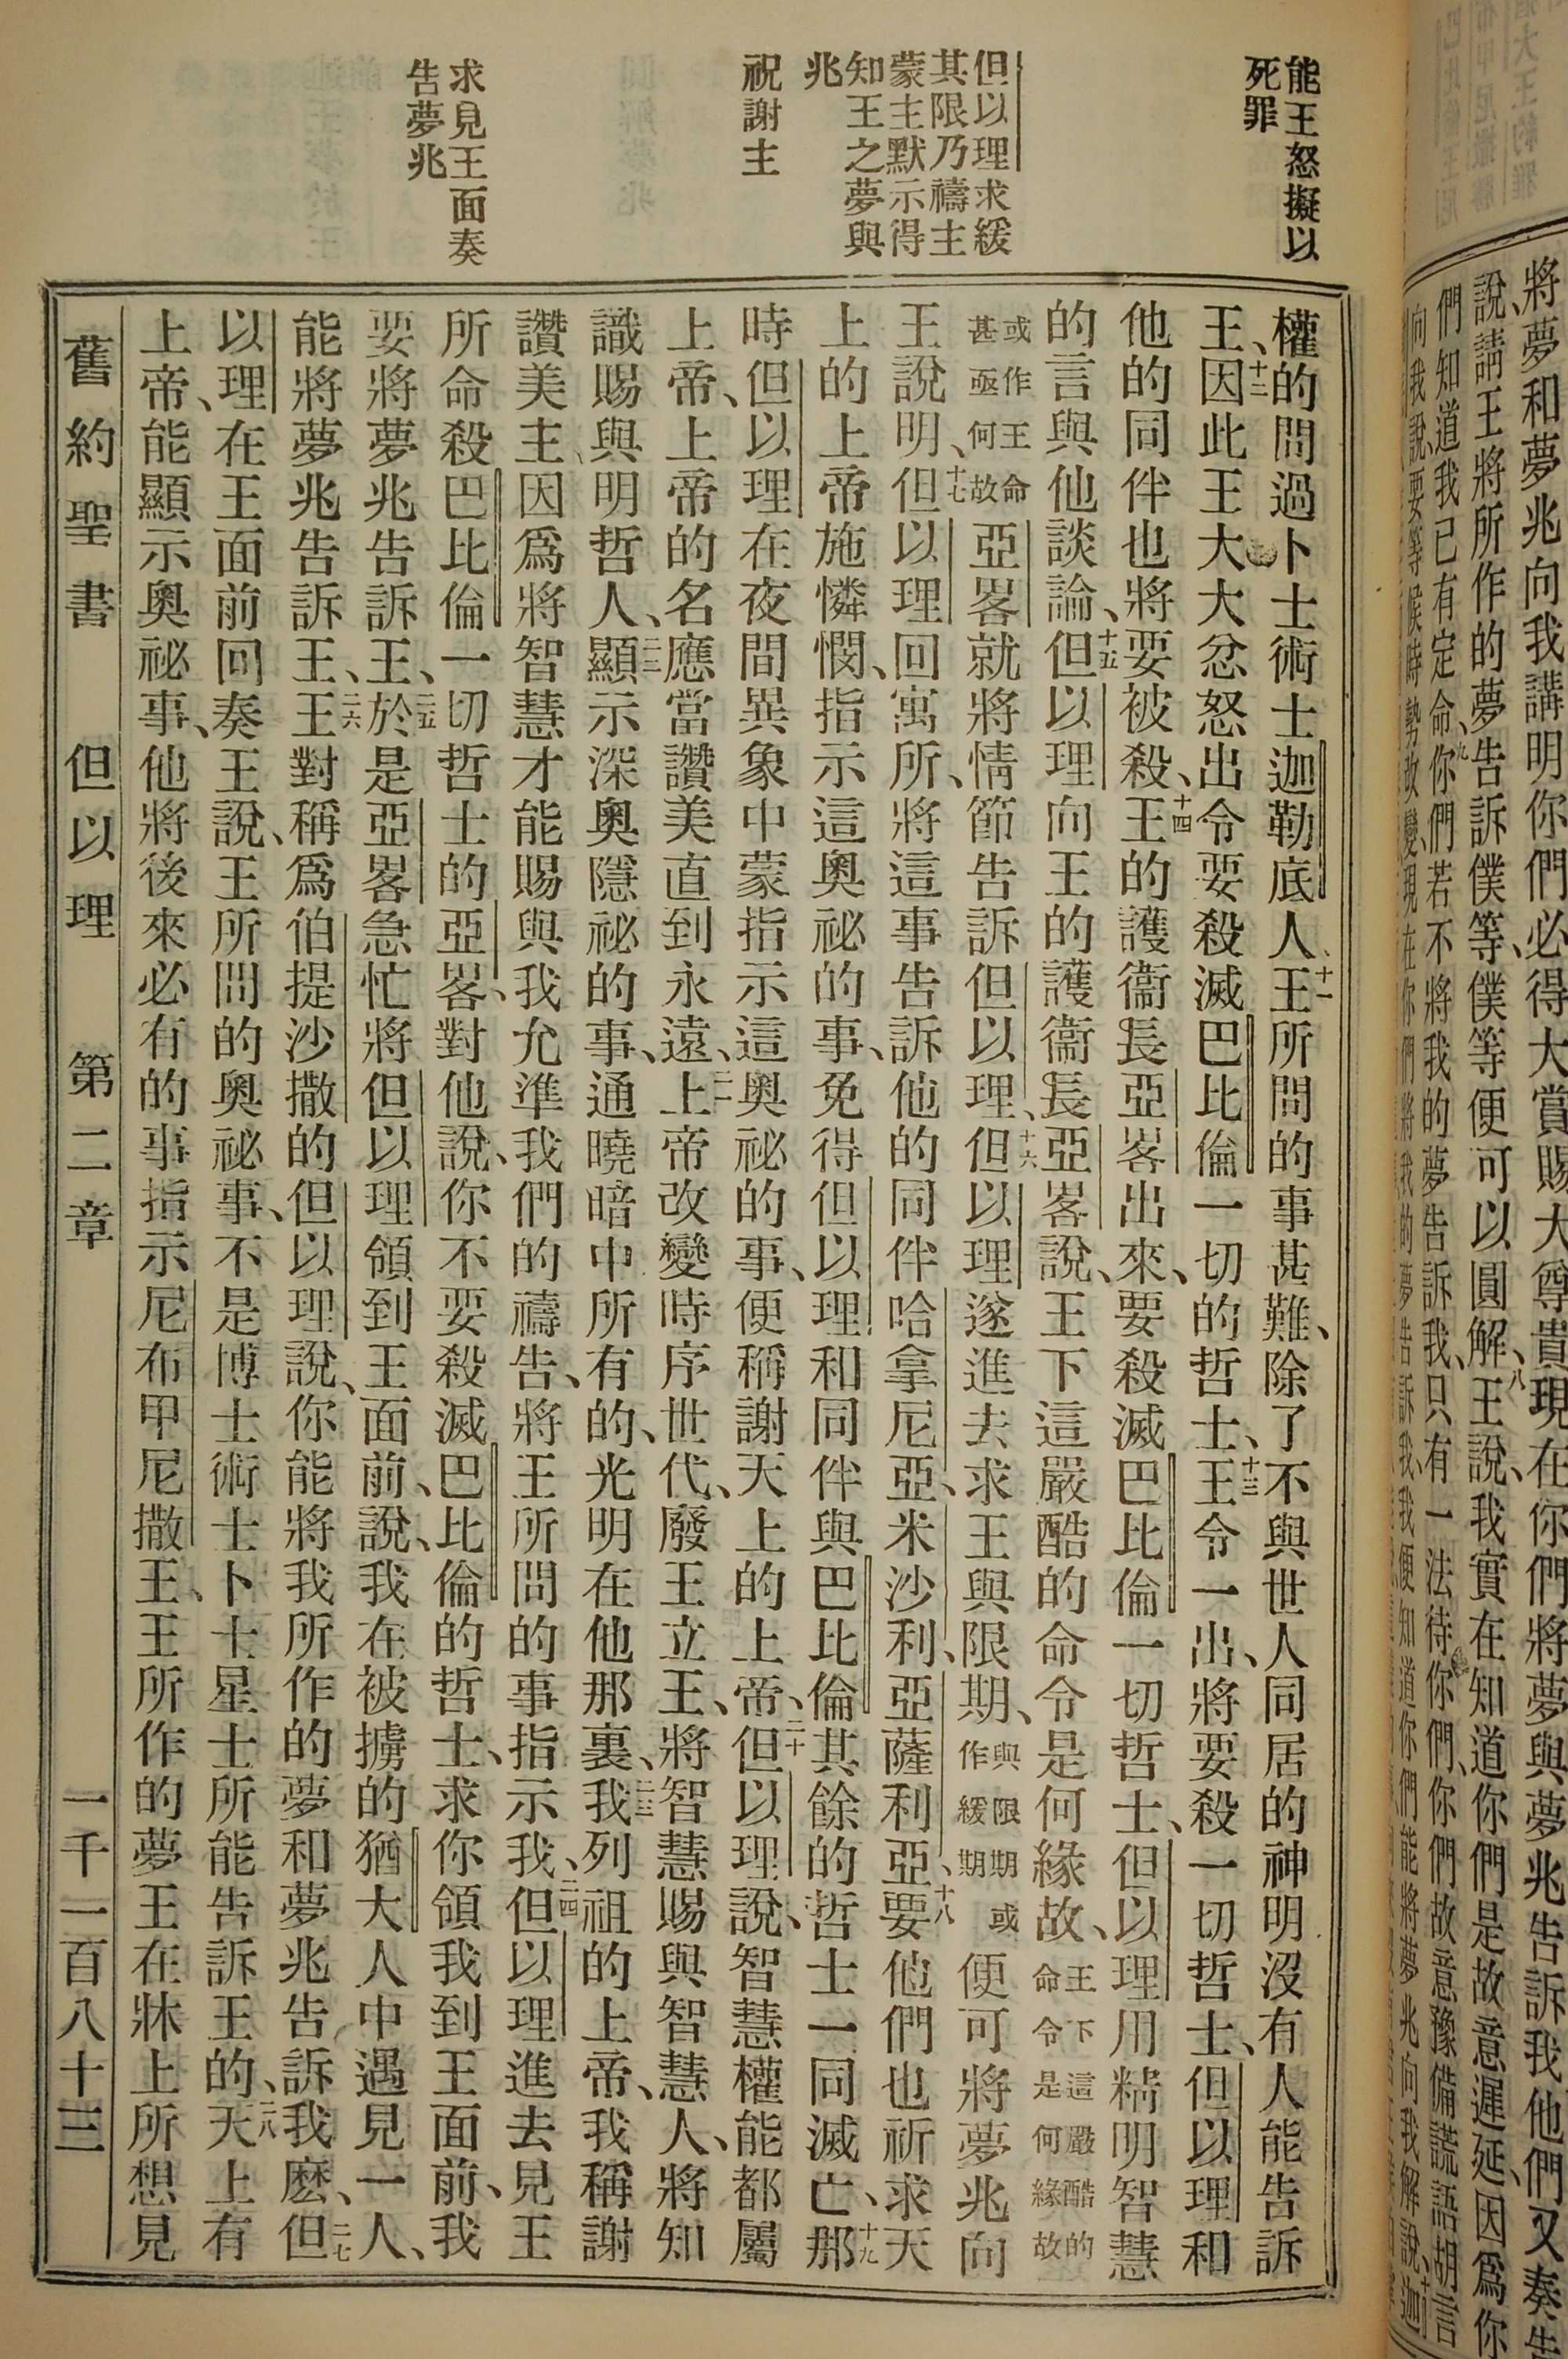 將夢和夢兆向我講明你們必得大賞賜大尊貴現在你們將夢與夢兆告訴我他們又奏告
說、請王將所作的夢告訴僕等、僕等便可以圓解、八王說、我實在知道你們是故意遲延、因爲你
們知道我已有定命、九你們若不將我的夢告訴我、只有一法待你們、你們故意豫備謊語胡言
向我說、要等候時勢改變、現在你們將我的夢告訴我、我便知道你們能將夢兆向我解說、十迦
能王怒擬以
死罪
但以理求緩
其限乃禱主
蒙主默示得
知王之夢與
兆
祝謝主
求見王面奏
告夢兆
權的問過卜士術士迦勒底人、十一王所問的事甚難、除了不與世人同居的神明沒有人能告訴
王、十二因此王大大忿怒出令要殺滅巴比倫一切的哲士、十三王令一出、將要殺一切哲士、但以理和
他的同伴也將要被殺、十四王的護衞長亞畧出來、要殺滅巴比倫一切哲士、但以理用精明智慧
的言與他談論、十五但以理向王的護衞長亞畧說、王下這嚴酷的命令是何緣故、王下這嚴酷的命令是何緣故
或作王命甚亟何故亞畧就將情節告訴但以理、十六但以理遂進去求王與限期、與限期或作緩期便可將夢兆向
王說明、十七但以理回寓所、將這事告訴他的同伴哈拿尼亞、米沙利、亞薩利亞、十八要他們也祈求天
上的上帝施憐憫、指示這奧祕的事、免得但以理和同伴與巴比倫其餘的哲士一同滅亡、十九那
時但以理在夜間異象中蒙指示這奧祕的事、便稱謝天上的上帝、二十但以理說、智慧權能都屬
上帝、上帝的名應當讚美直到永遠、二一上帝改變時序世代、廢王立王、將智慧賜與智慧人、將知
識賜與明哲人、二二顯示深奧隱祕的事、通曉暗中所有的、光明在他那裏、二三我列祖的上帝、我稱謝
讚美主、因爲將智慧才能賜與我允準我們的禱告、將王所問的事指示我、二四但以理進去見王
所命殺巴比倫一切哲士的亞畧、對他說、你不要殺滅巴比倫的哲士、求你領我到王面前、我
要將夢兆告訴王、二五於是亞畧急忙將但以理領到王面前、說、我在被擄的猶大人中遇見一人、
能將夢兆告訴王、二六王對稱爲伯提沙撒的但以理說、你能將我所作的夢和夢兆告訴我麽、二七但
以理在王面前回奏王說、王所問的奧祕事、不是博士術士卜士星士所能告訴王的、二八天上有
上帝、能顯示奧祕事、他將後來必有的事指示尼布甲尼撒王、王所作的夢王在牀上所想見
舊約聖書 但以理 第二章 一千一百八十三